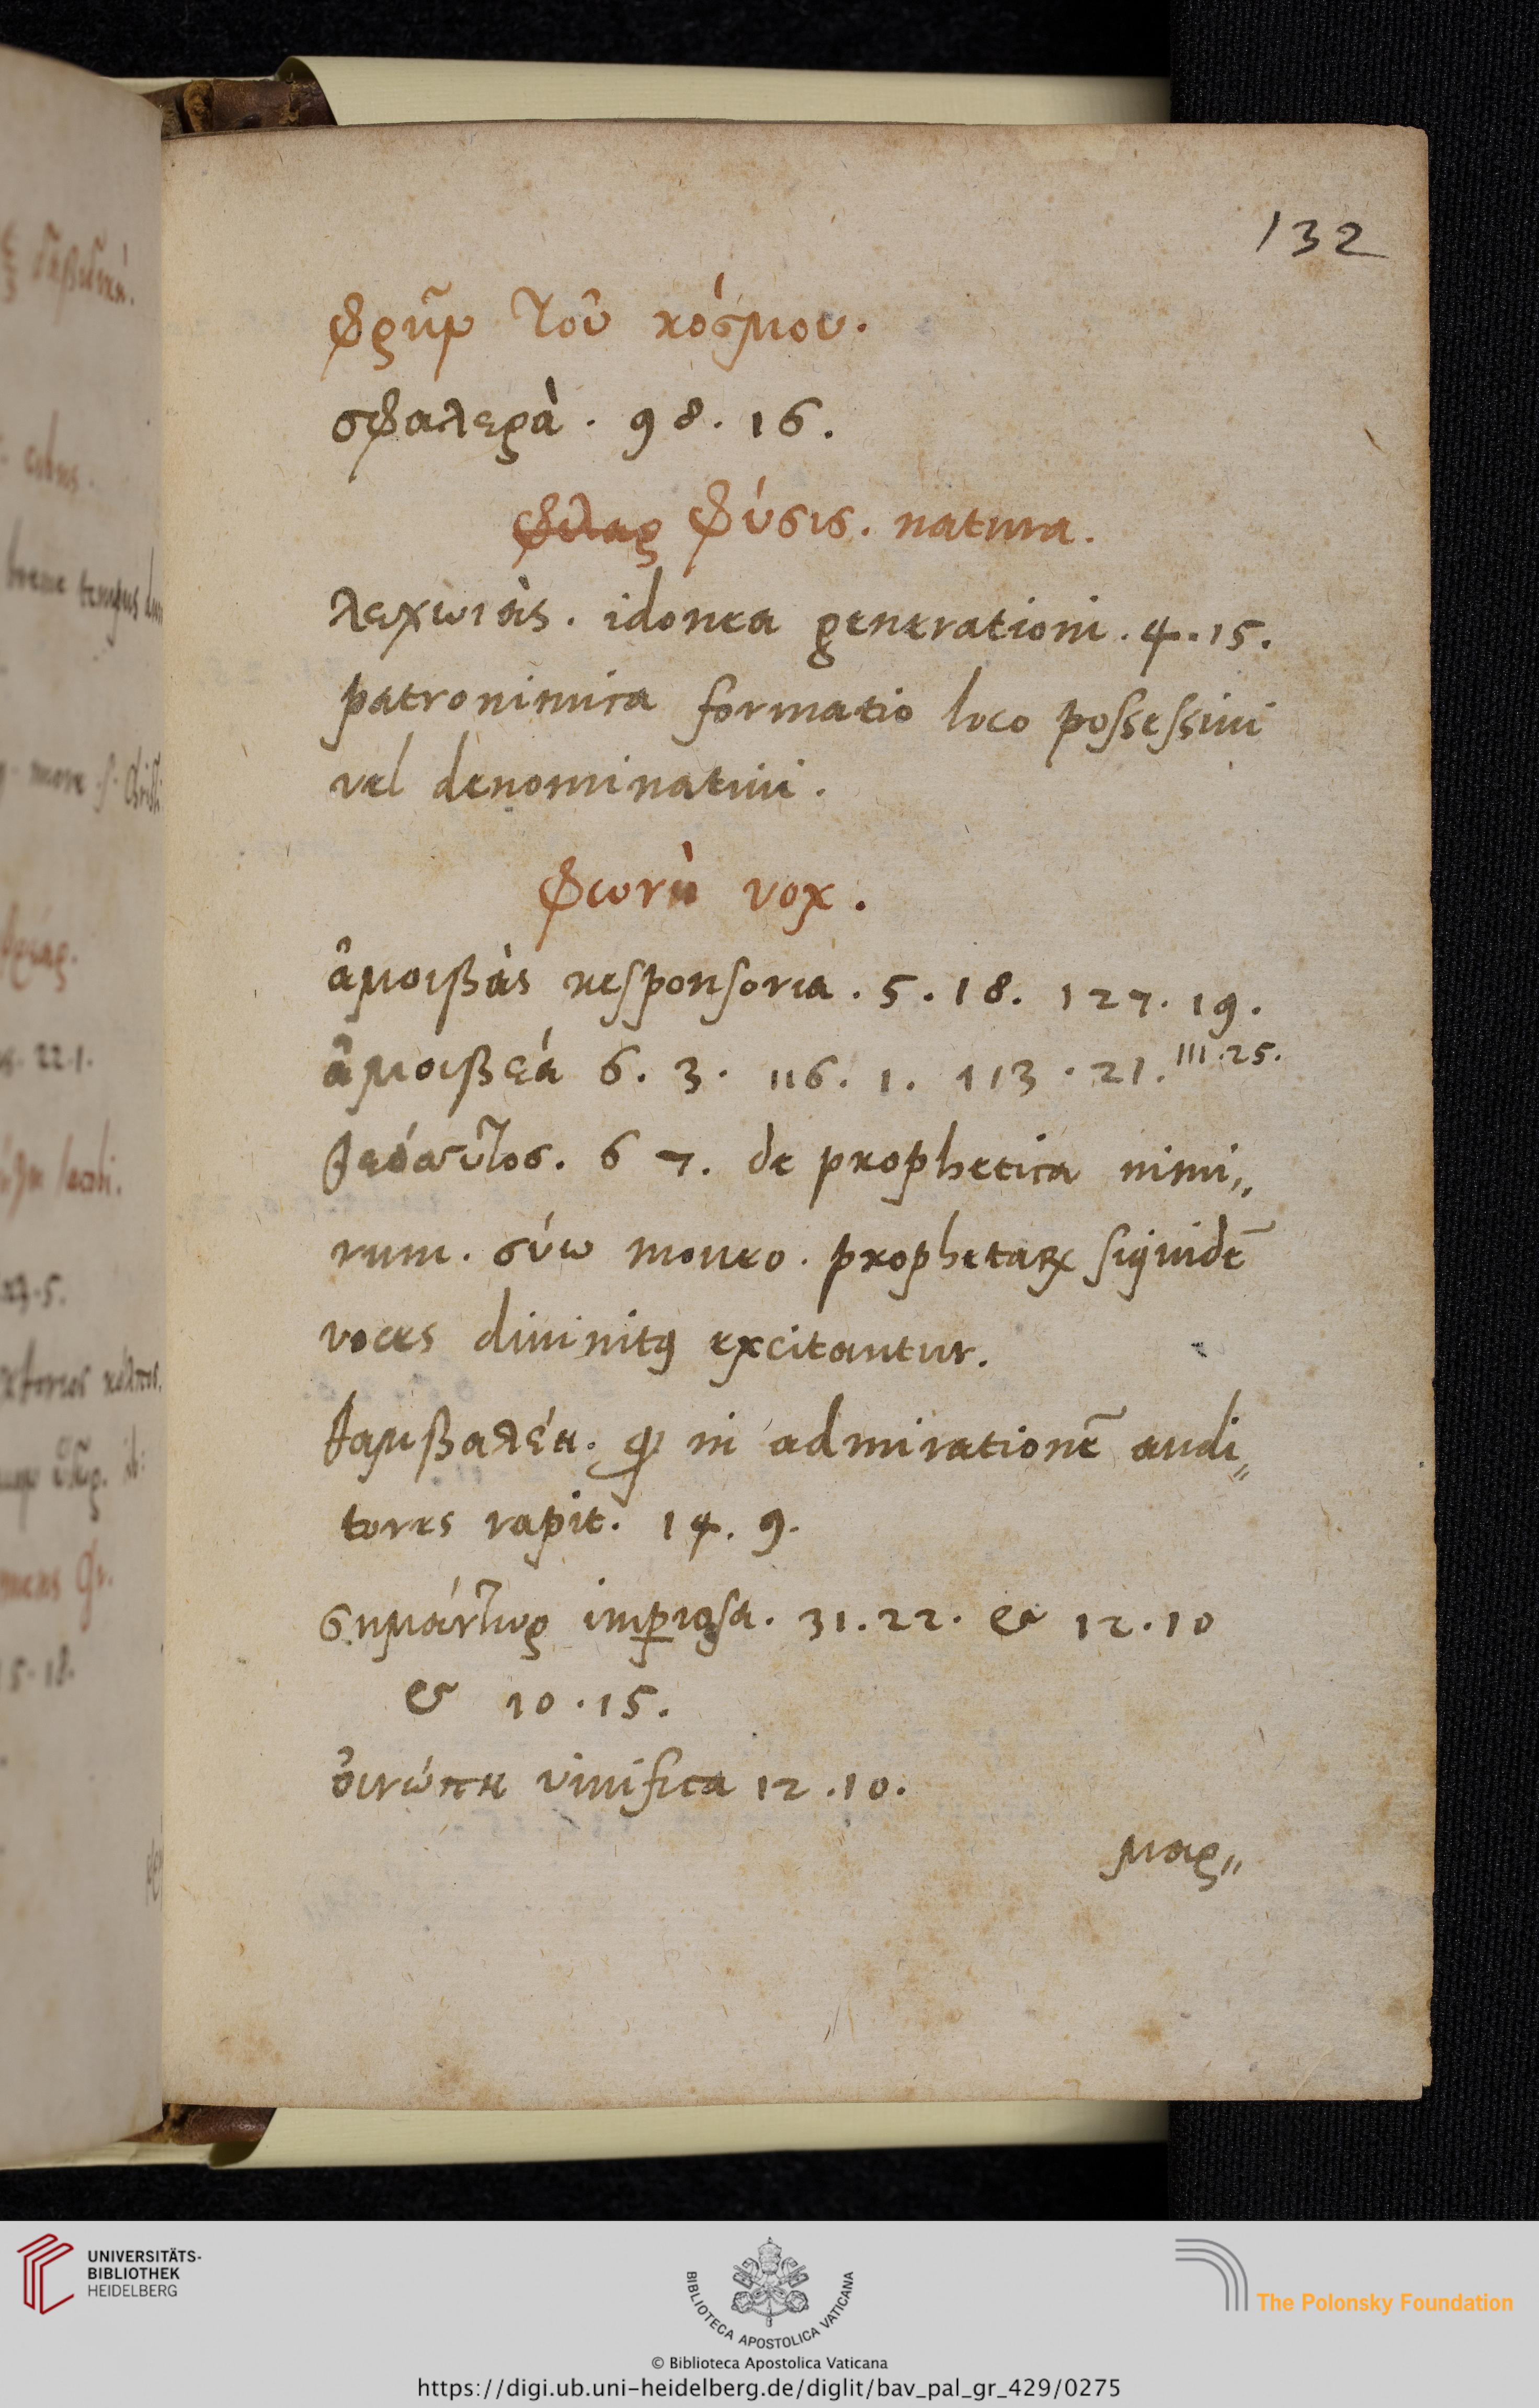 132
φρὴν τοῦ κόσμου.
σφαλερὰ . 98. 16.
φιλαρ φύσις. natura.
λεχωιὰς . idonea generationi . 4. 15.
patronimica formatio loco possessiui
vel denominatiui .
φωνὴ vox .
ἀμοιβὰς responsoria . 5 . 18. 127. 19.
ἀμοιβεά 6. 3. 116. 1. 113 . 21. 111. 25.
θεόσυτος. 6 7. de prophetica nimi„
rum . σύω moueo . prophetaꝝ siquidē
voces diuinitꝰ excitantur.
θαμβαλέη. ꝙ in admirationē audi„
tores rapit. 14. 9.
σημάντωρ imperiosa. 31. 22. & 12. 10
& 10 . 15.
οἰνώπη vinifica 12 . 10.
μαρ„
UNIVERSITÄTS-
BIBLIOTHEK
HEIDELBERG
BIBLIOTECA APOSTOLICA VATICANA
The Polonsky Foundation
© Biblioteca Apostolica Vaticana
https://digi.ub.uni-heidelberg.de/diglit/bav_pal_gr_429/0275